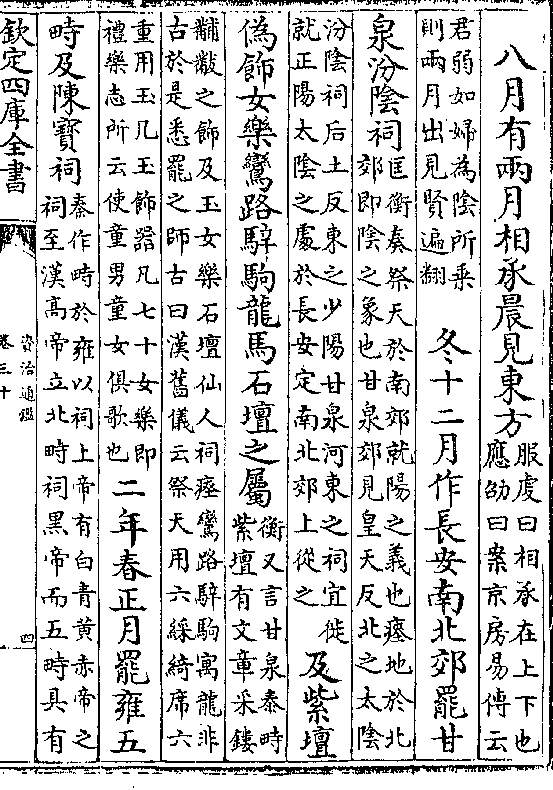 八月有兩月相承晨見東方服虔曰相承在上下也
應劭曰案京房易傳云
君弱如婦為陰所乗
則兩月出見賢遍翻
冬十二月作長安南北郊罷甘
泉汾陰祠匡衡奏祭天於南郊就陽之義也瘞地於北
郊即陰之象也甘泉郊見皇天反北之太陰
汾陰祠后土反東之少陽甘泉河東之祠宜徙
就正陽太陰之處於長安定南北郊上從之
及紫壇
偽飾女樂鸞路騂駒龍馬石壇之屬衡又言甘泉泰畤
紫壇有文章采鏤
黼黻之飾及玉女樂石壇仙人祠瘞鸞路騂駒寓龍非
古於是悉罷之師古曰漢舊儀云祭天用六綵綺席六
重用玉几玉飾器凡七十女樂即
禮樂志所云使童男童女俱歌也
二年春正月罷雍五
畤及陳寶祠秦作畤於雍以祠上帝有白青黄赤帝之
祠至漢髙帝立北畤祠黒帝而五畤具有
欽定四庫全書
資治通鑑
卷三十
四